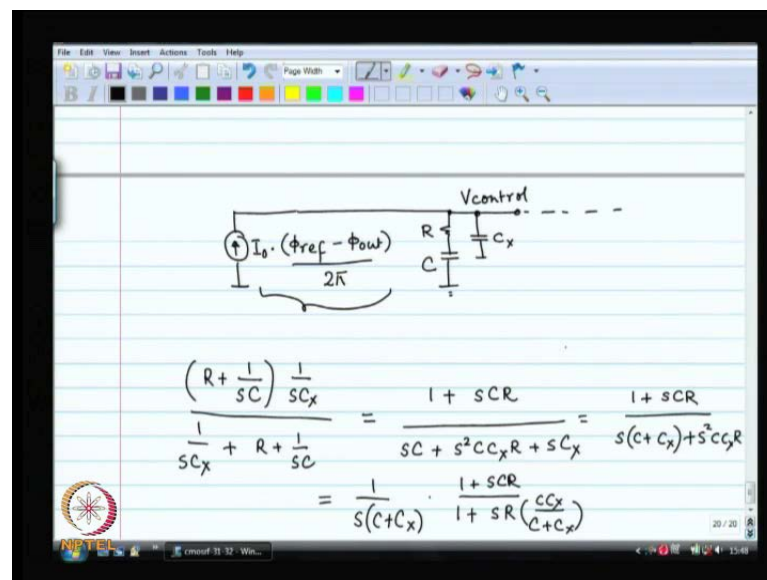 File Edit View Insert Actions Tools Help
Page Width
B I
Vcontrol
I₀·(ϕref − ϕout)
2π
R
C
Cx
(R + 1/SC) 1/SCx
1/SCx + R + 1/SC
= 1 + SCR
SC + S²CCxR + SCx
= 1 + SCR
S(C+Cx)+S²CCxR
= 1/S(C+Cx) · 1+SCR/1+SR(CCx/C+Cx)
20 / 20
NPTEL
cmosrf-31-32 - Win...
15:48